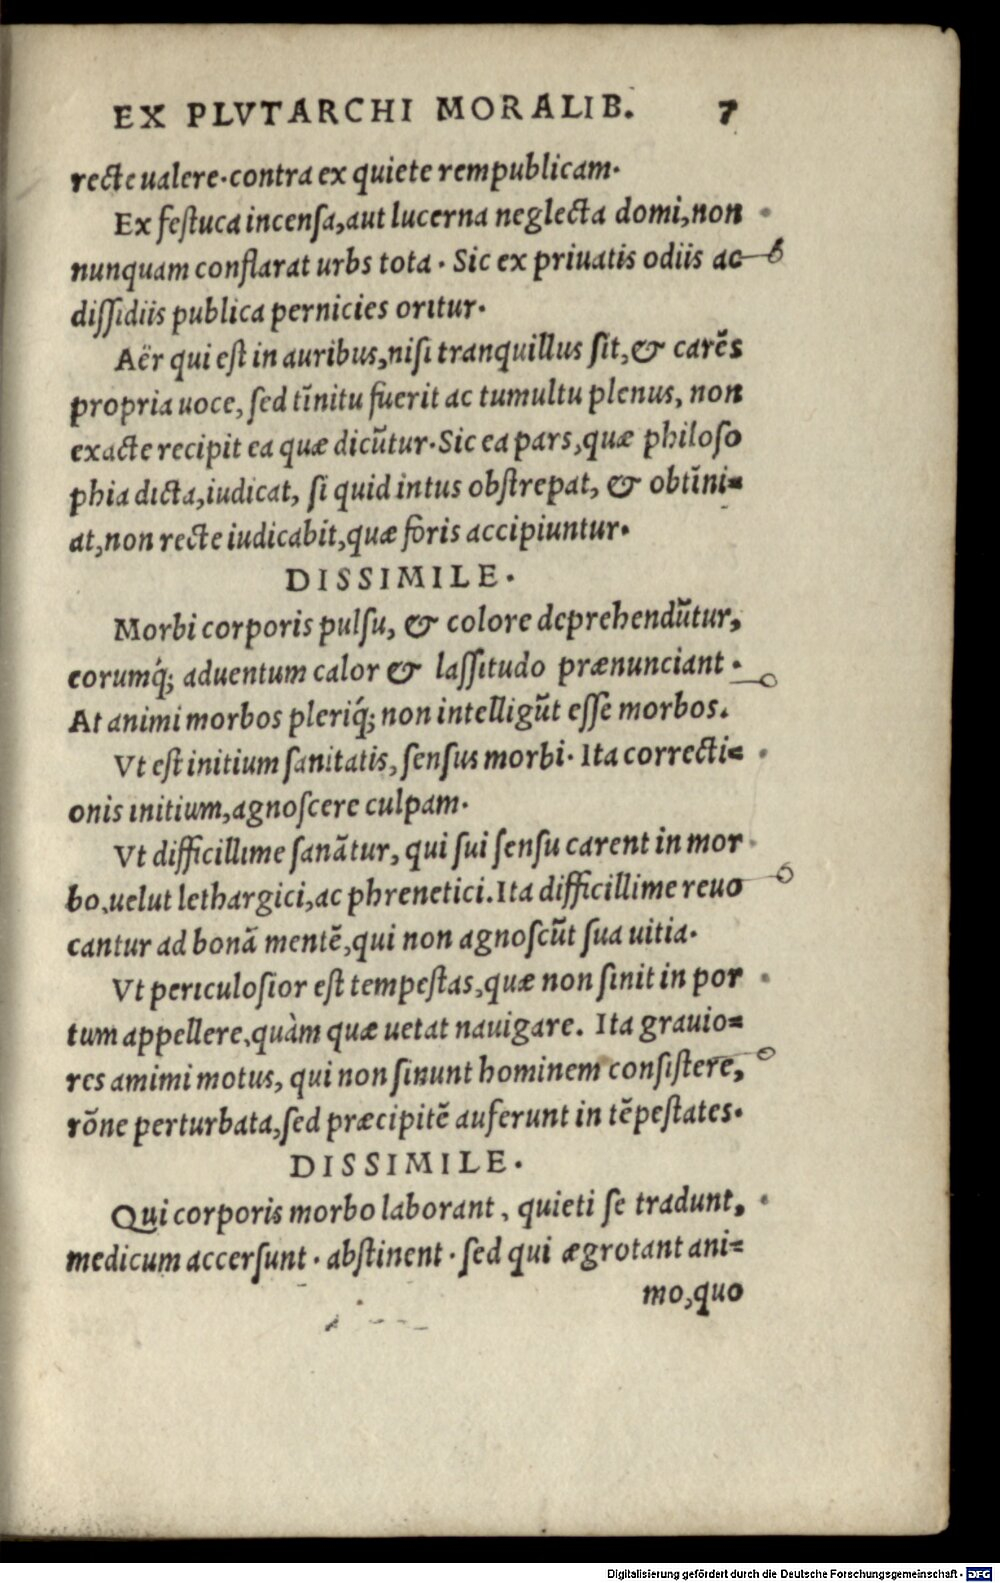 EX PLVTARCHI MORALIB. 7
recte ualere. contra ex quiete rempublicam.
Ex feſtuca incenſa, aut lucerna neglecta domi, non
nunquam conflarat urbs tota. Sic ex priuatis odiis ac
diſſidiis publica pernicies oritur.
Aër qui eſt in auribus, niſi tranquillus ſit, & carẽs
propria uoce, ſed tĩnitu fuerit ac tumultu plenus, non
exacte recipit ea quæ dicũtur. Sic ea pars, quæ philoſo
phia dicta, iudicat, ſi quid intus obſtrepat, & obtĩni=
at, non recte iudicabit, quæ foris accipiuntur.
DISSIMILE.
Morbi corporis pulſu, & colore deprehendũtur,
eorumq́; aduentum calor & laſſitudo prænunciant.
At animi morbos pleriq́; non intelligũt eſſe morbos.
Vt eſt initium ſanitatis, ſenſus morbi. Ita correcti=
onis initium, agnoſcere culpam.
Vt difficillime ſanãtur, qui ſui ſenſu carent in mor
bo, uelut lethargici, ac phrenetici. Ita difficillime reuo
cantur ad bonã mentẽ, qui non agnoſcũt ſua uitia.
Vt periculoſior eſt tempeſtas, quæ non ſinit in por
tum appellere, quàm quæ uetat nauigare. Ita grauio=
res amimi motus, qui non ſinunt hominem conſiſtere,
rõne perturbata, ſed præcipitẽ auferunt in tẽpeſtates.
DISSIMILE.
Qui corporis morbo laborant, quieti ſe tradunt,
medicum accerſunt. abſtinent. ſed qui ægrotant ani=
mo, quo
Digitalisierung gefördert durch die Deutsche Forschungsgemeinschaft - DFG